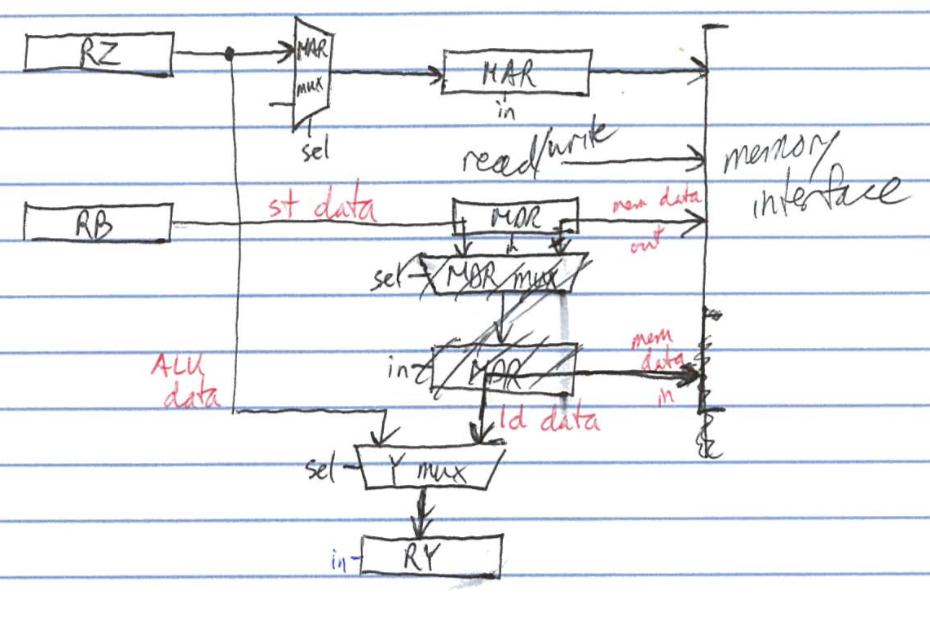 RZ
MAR
mux
sel
MAR
in
read/write
memory
interface
RB
st data
MDR
in
mem data
out
sel
MAR mux
in
MAR
mem
data
in
ALU
data
ld data
sel
Y mux
in
RY